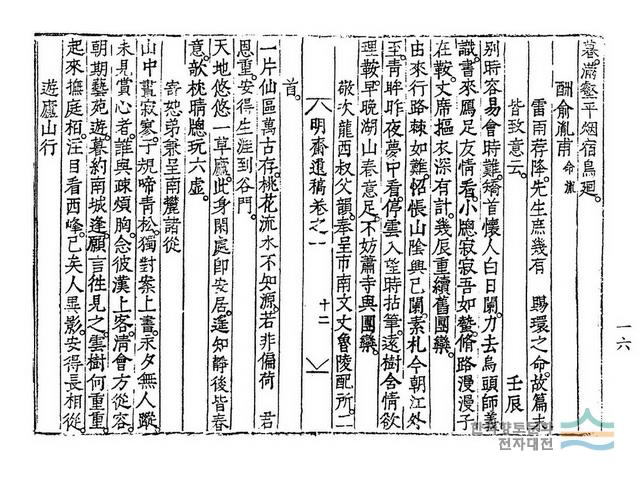 暮滿壑平烟宿鳥廻
酬俞胤甫 命胤
雷雨荐降先生庶幾有 賜環之命故篇末
皆致意云 壬辰
別時容易會時難矯首懷人白日闌力去烏頭師善
識書來鴈足友情看小牕寂寂吾如蟄脩路漫漫子
在鞍丈席摳衣深有計幾辰重續舊團欒
由來行路棘如難怊悵山陰興已闌素札今朝江外
至靑眸昨夜夢中看停雲入望時拈筆遠樹含情欲
理鞍早晩湖山春意足不妨蕭寺與團欒
敬次龍西叔父韻奉呈市南文丈魯陵配所二
明齋遺稿卷之一 十二
首
一片仙區萬古存桃花流水不知源若非偏荷 君
恩重安得生涯到谷門
天地悠悠一草廬此身閑處卽安居遥知靜後皆春
意欹枕晴牕玩六虛
寄恕弟兼呈南麓諸從
山中聽寂寥子規啼靑松獨對案上書永夕無人蹤
未見賞心者誰與疎煩胸念彼漢上客淸會方從容
朝期藝苑遊暮約南城逢願言徃見之雲樹何重重
起來撫庭栢注目看西峰已矣人異影安得長相從
遊廬山行
一六
향토문화
전자대전